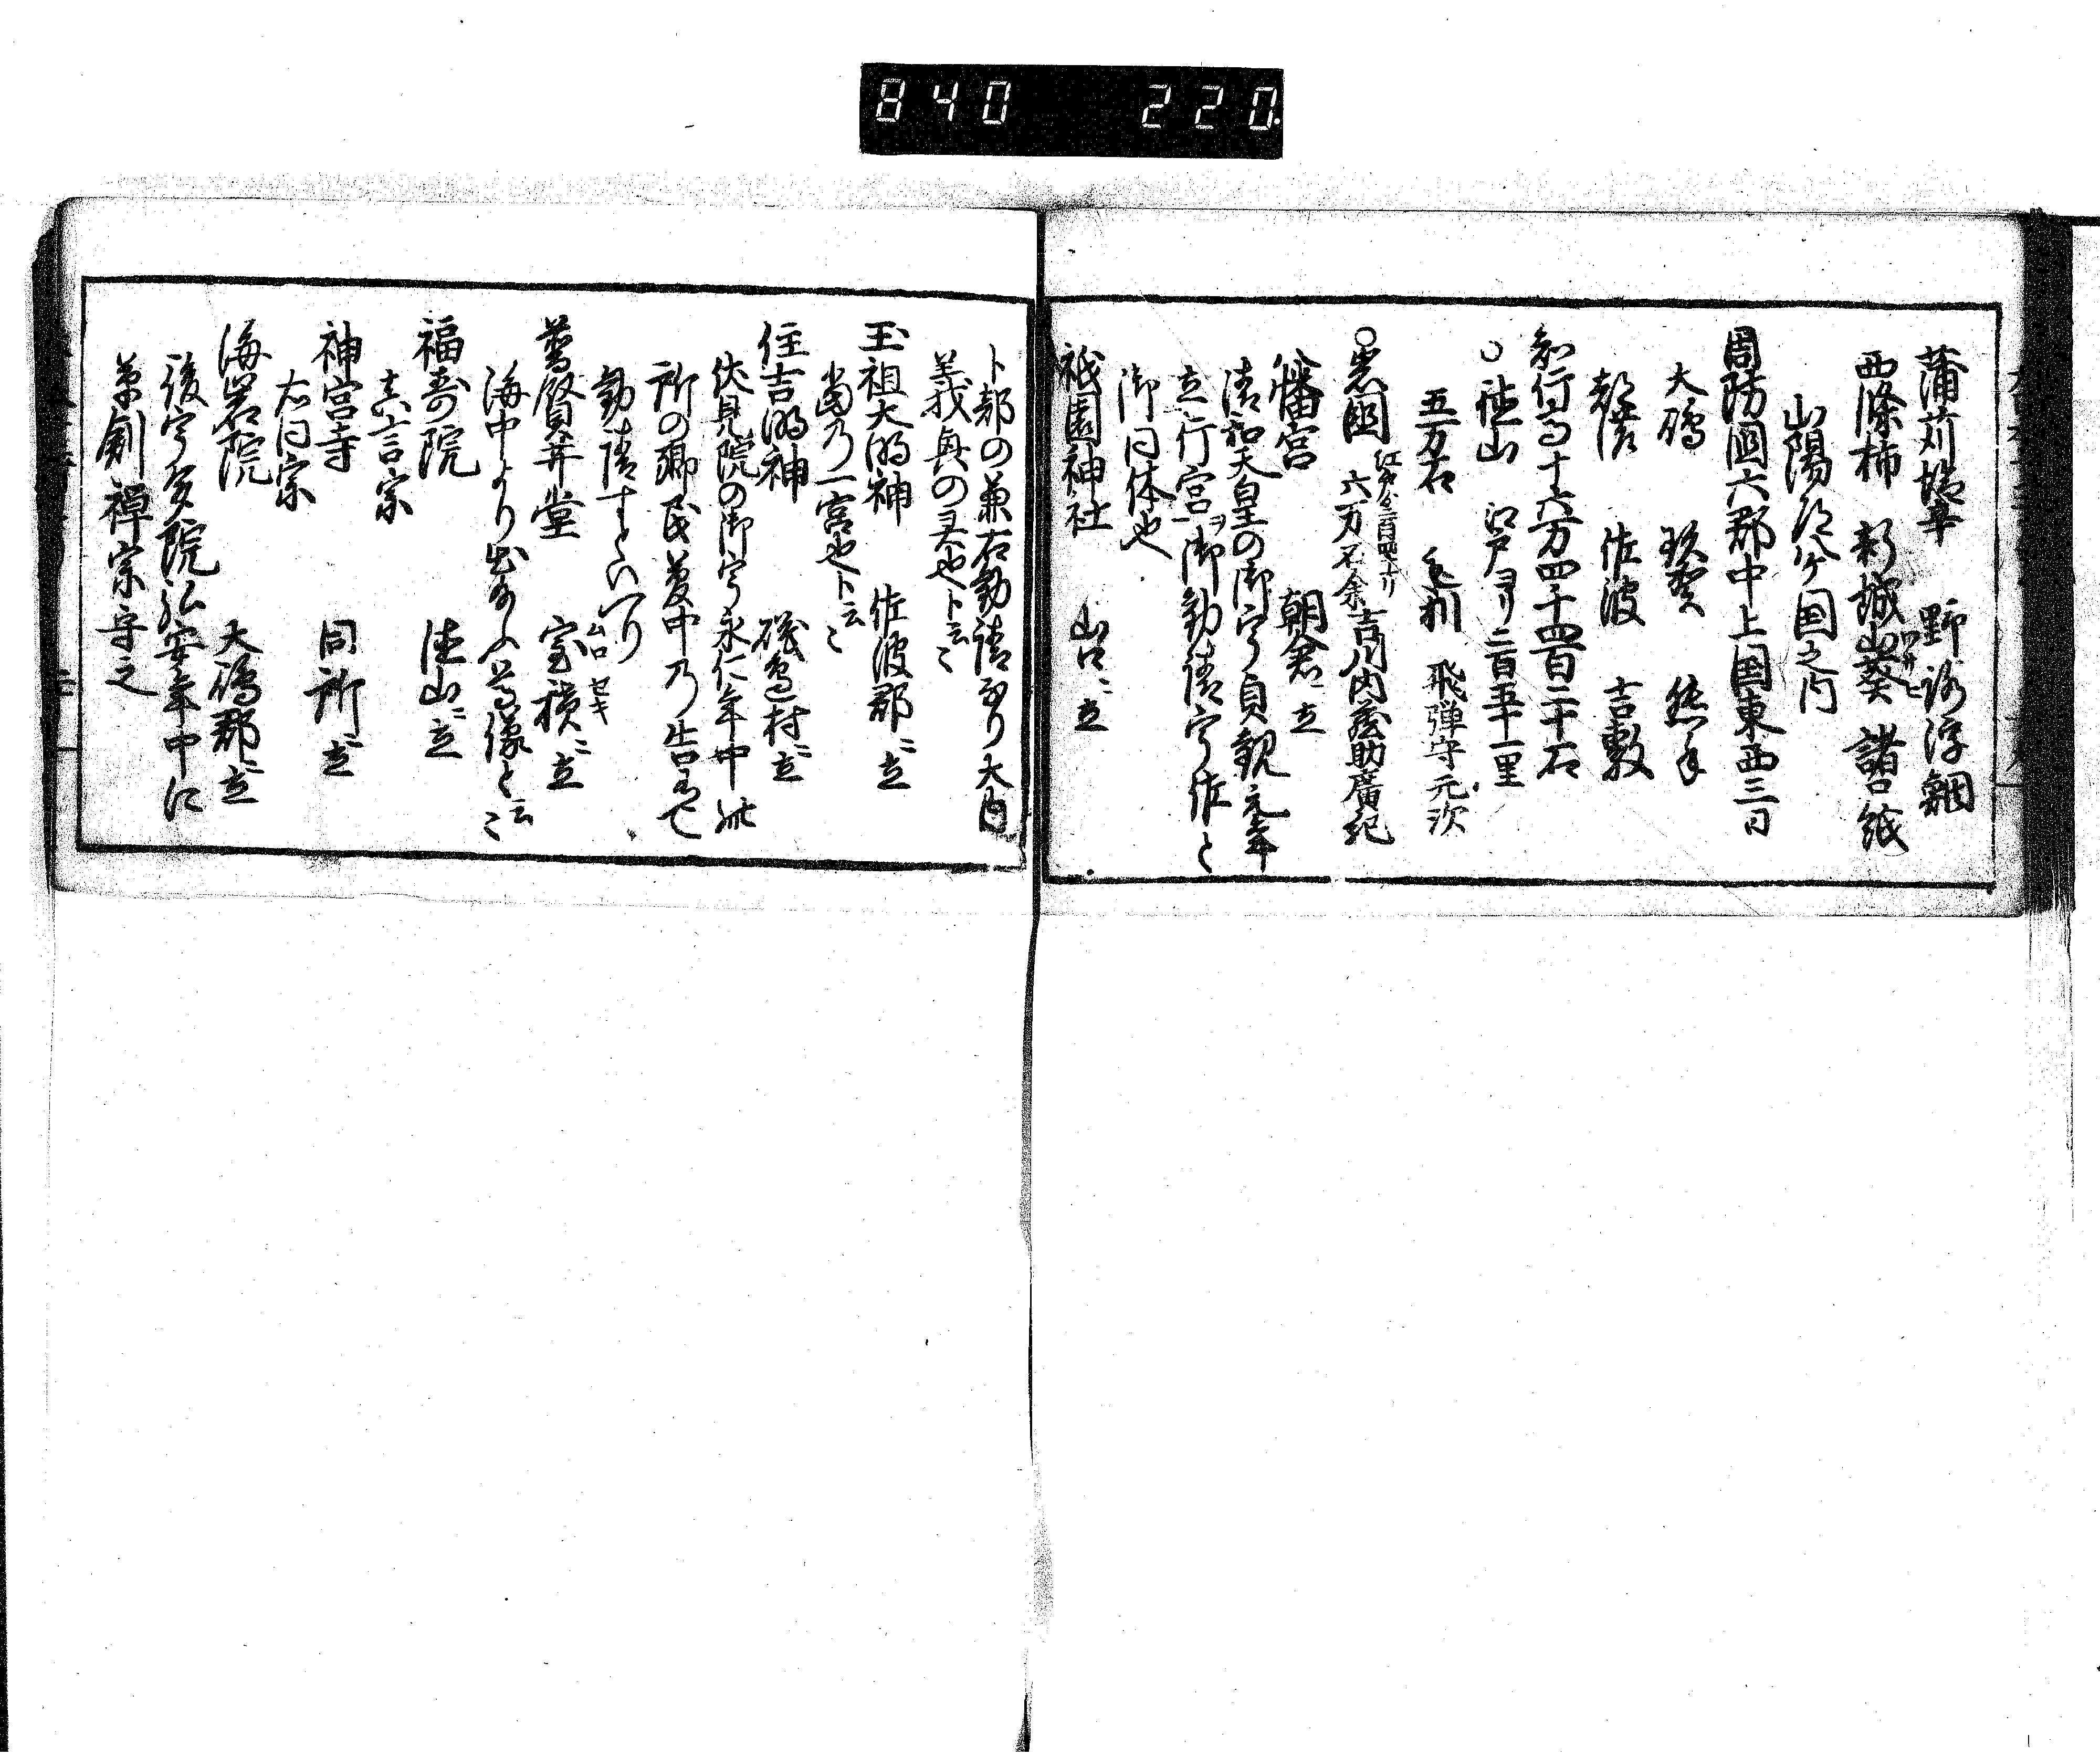 840 220
蒲苅塩辛 野路浮鯛
西條柿 新城山葵 諸口紙
山陽道八ケ国之内
周防国六郡中上国東西三日
大嶋 玖賀 熊毛
都濃 佐波 吉敷
知行高十六万四千四百二十石
○徳山 江戸ヨリ二百五十一里
五万石 毛利 飛弾守元次
○岩国 六万石余吉川内蔵助廣紀
八幡宮 朝倉ニ立
清和天皇の御宇貞観元年
立行宮ヲ御勧請宇佐と
御同体也
祇園神社 山口ニ立
卜部の兼右勧請なり大内
義興の
玉祖大明神 佐波郡ニ立
當乃一宮也ト云々
住吉明神 磯邊村ニ立
伏見院の御宇永仁年中此
所の郷民夢中乃告有て
勧請すといへり
普賢并堂 室積ニ立
海中より出あらふ尊像と云々
福寿院 徳山ニ立
真言宗
神宮寺 同所ニ立
右同宗
海岩院 大嶋郡ニ立
後宇多院弘安年中に
草創禅宗守之